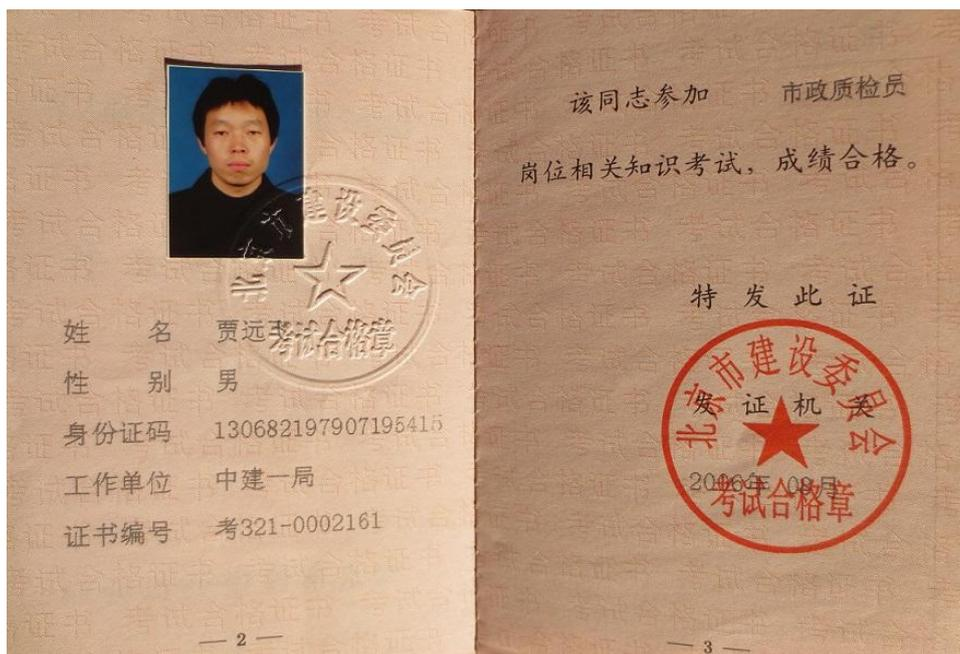 北京市建设委员会
考试合格章
姓 名 贾远
性 别 男
身份证码 130682197907195415
工作单位 中建一局
证书编号 考321-0002161
— 2 —
该同志参加 市政质检员
岗位相关知识考试，成绩合格。
特发此证
北京市建设委员会
发证机关
2006年 08月
考试合格章
— 3 —